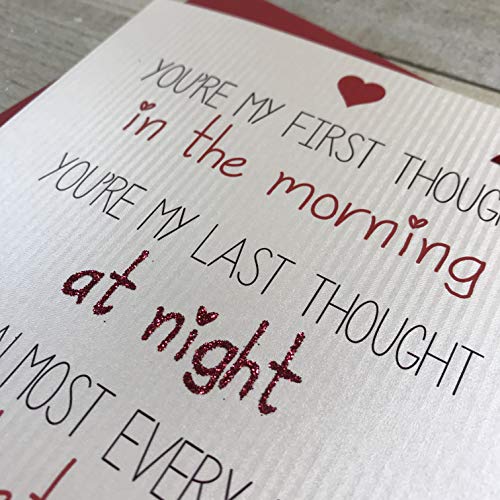 YOU'RE MY FIRST
in the morning
YOU'RE MY LAST THOUGHT
at night
ALMOST EVERY